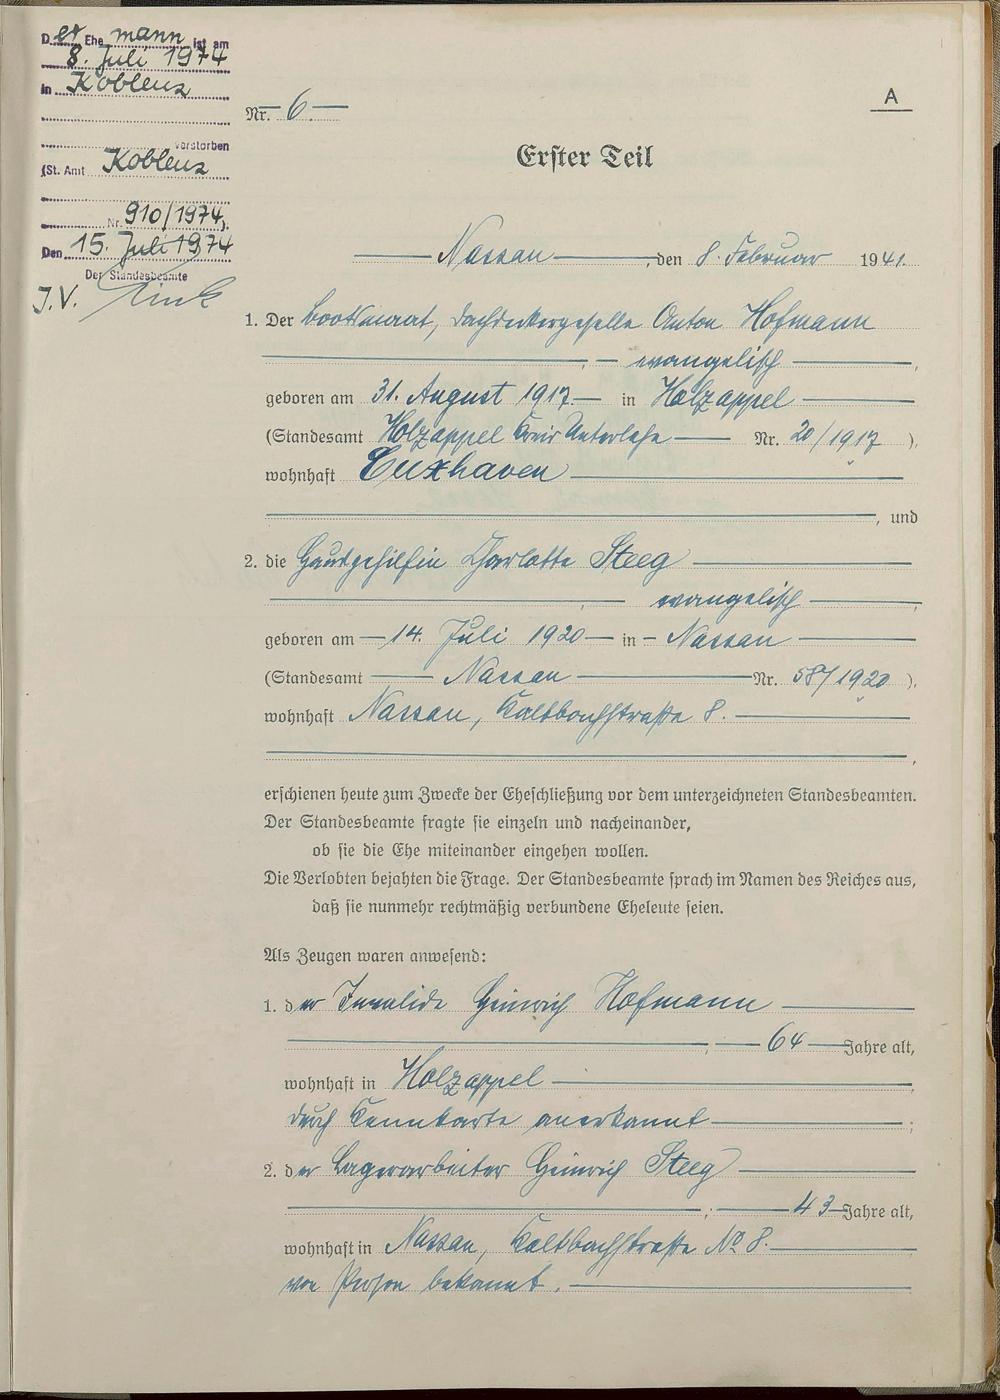 Der Ehemann ist am
8. Juli 1974
in Koblenz
verstorben
(St. Amt Koblenz
Nr. 910/1974,
Den 15. Juli 1974
Der Standesbeamte
J.V.
Nr. 6.
A
Erster Teil
Nassau, den 8. Februar 1941.
1. Der Bootsmaat, Dachdeckergeselle Anton Hofmann
, evangelisch,
geboren am 31. August 1917 in Holzapfel
(Standesamt Holzappel Kreis Unterlahn Nr. 20/1917),
wohnhaft Cuxhaven
, und
2. die Hausgehilfin Charlotte Steeg
, evangelisch,
geboren am 14. Juli 1920 in Nassau
(Standesamt Nassau Nr. 58/1920),
wohnhaft Nassau, Kaltbachstraße 8.
,
erschienen heute zum Zwecke der Eheschließung vor dem unterzeichneten Standesbeamten.
Der Standesbeamte fragte sie einzeln und nacheinander,
ob sie die Ehe miteinander eingehen wollen.
Die Verlobten bejahten die Frage. Der Standesbeamte sprach im Namen des Reiches aus,
daß sie nunmehr rechtmäßig verbundene Eheleute seien.
Als Zeugen waren anwesend:
1. der Invalide Heinrich Hofmann
, 64 Jahre alt,
wohnhaft in Holzappel,
durch Kennkarte anerkannt;
2. der Lagerarbeiter Heinrich Steeg
, 43 Jahre alt,
wohnhaft in Nassau, Kaltbachstraße No 8.
von Person bekannt.